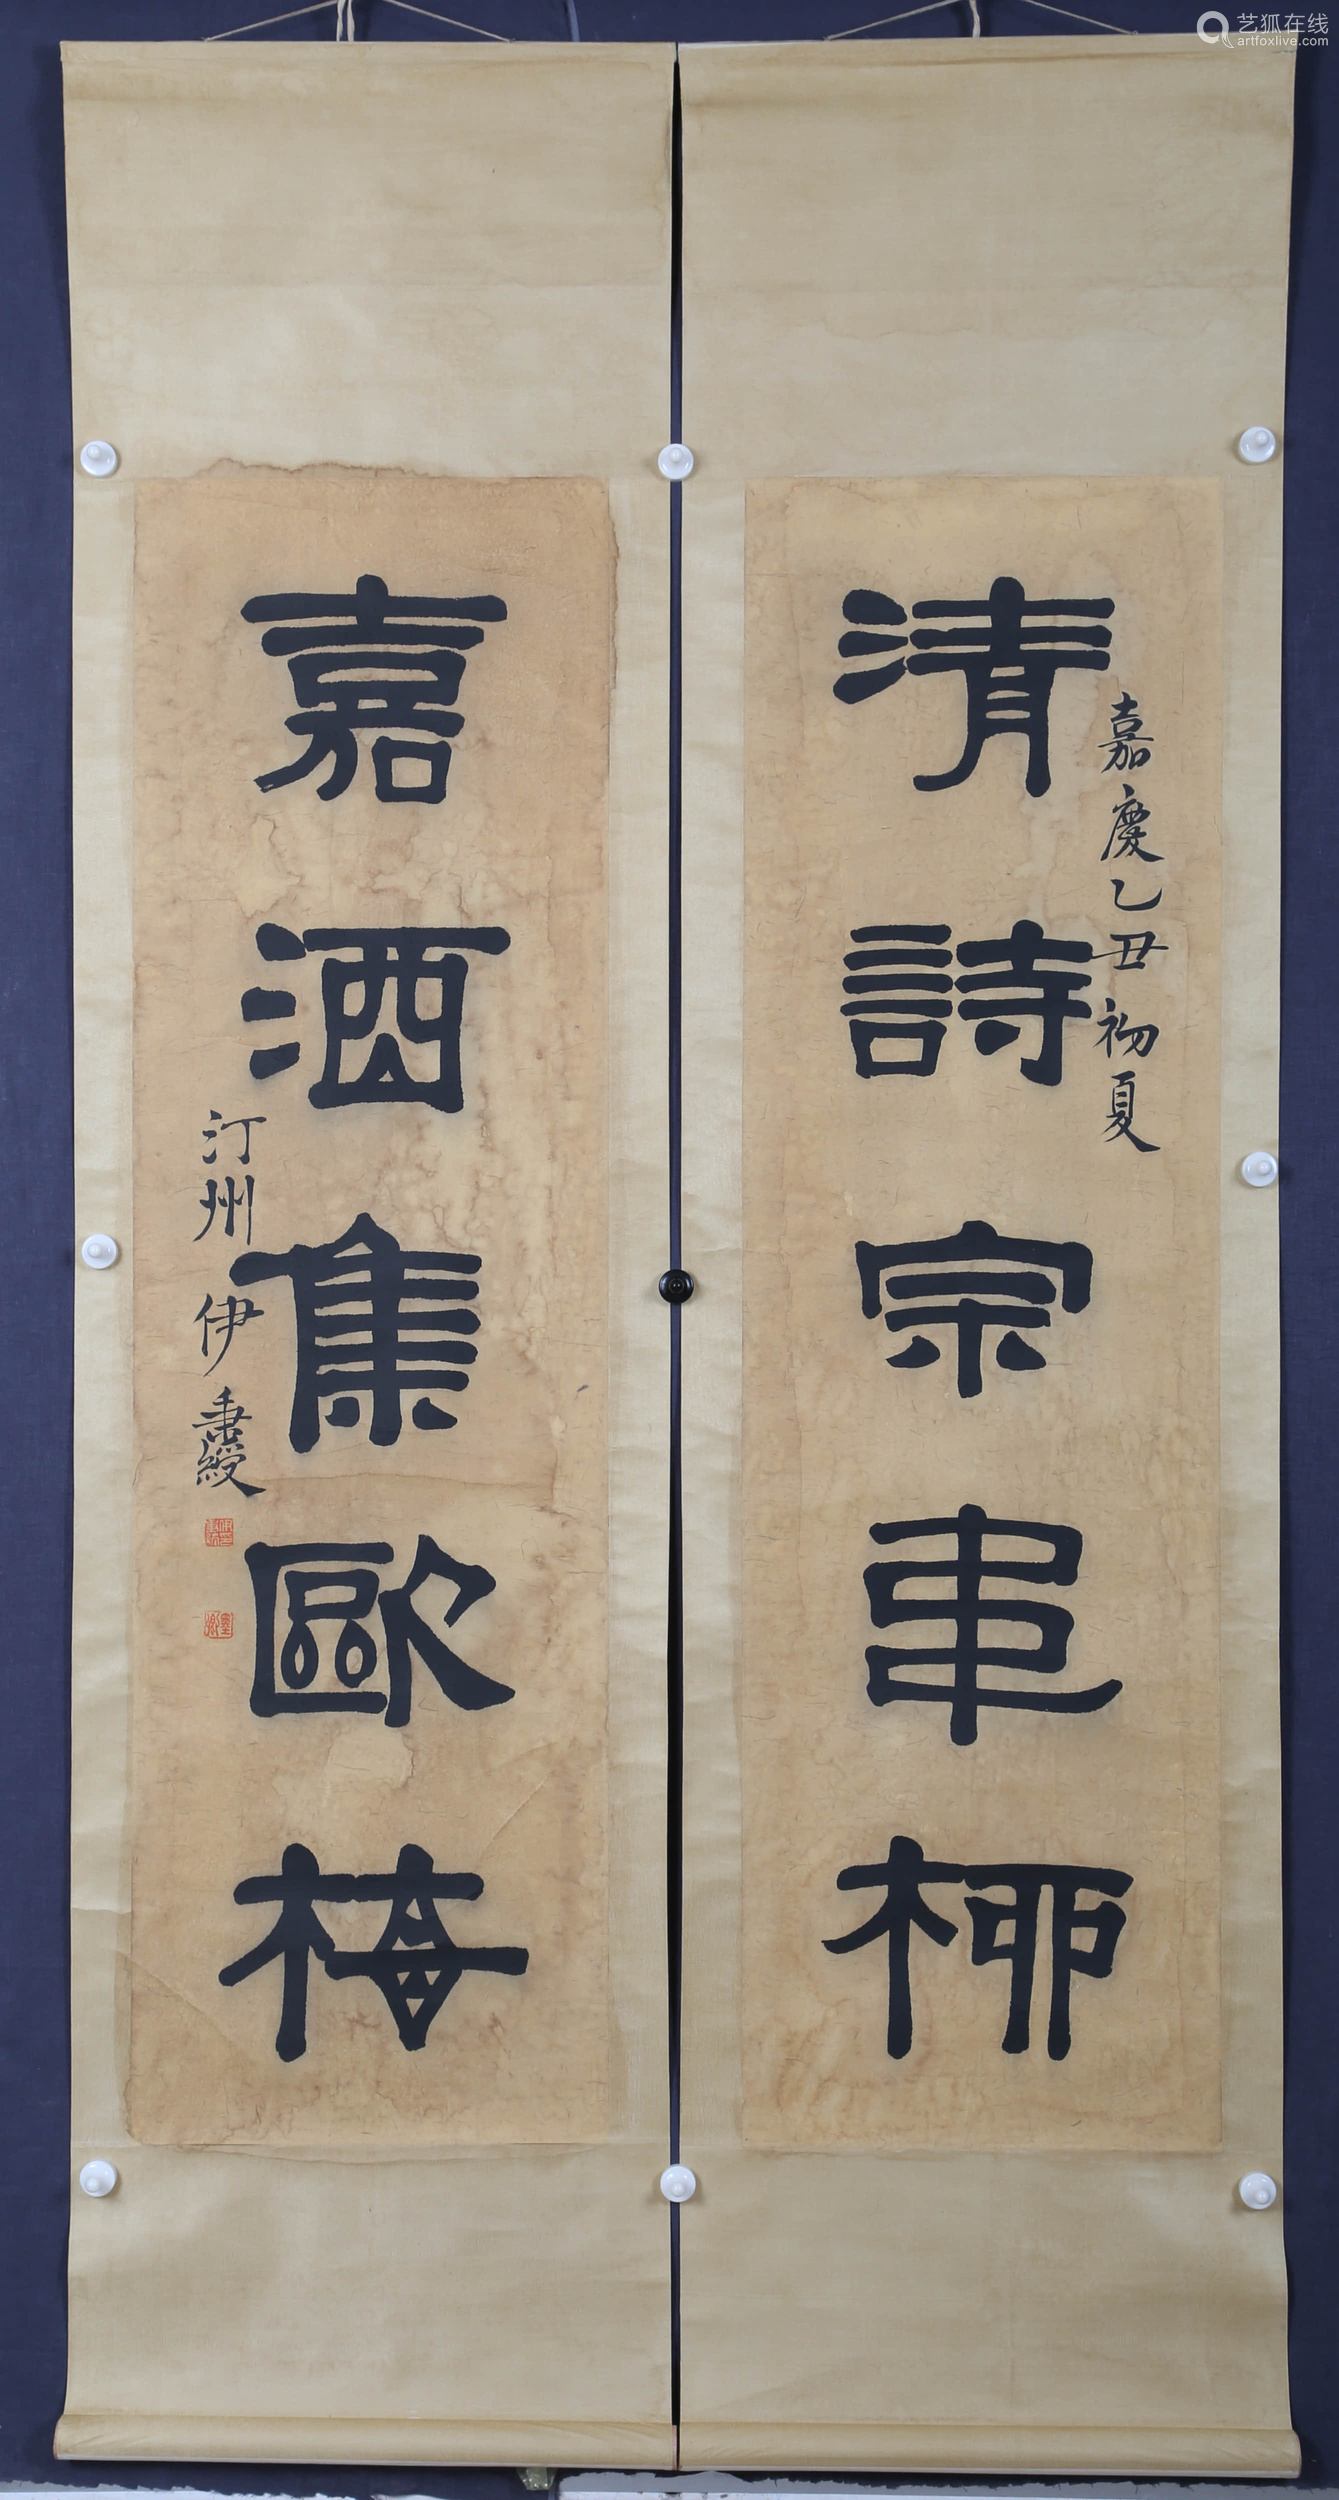 艺狐在线
artfoxlive.com
嘉慶乙丑初夏
清詩宗韋柳
嘉酒集歐梅
汀州伊秉綬